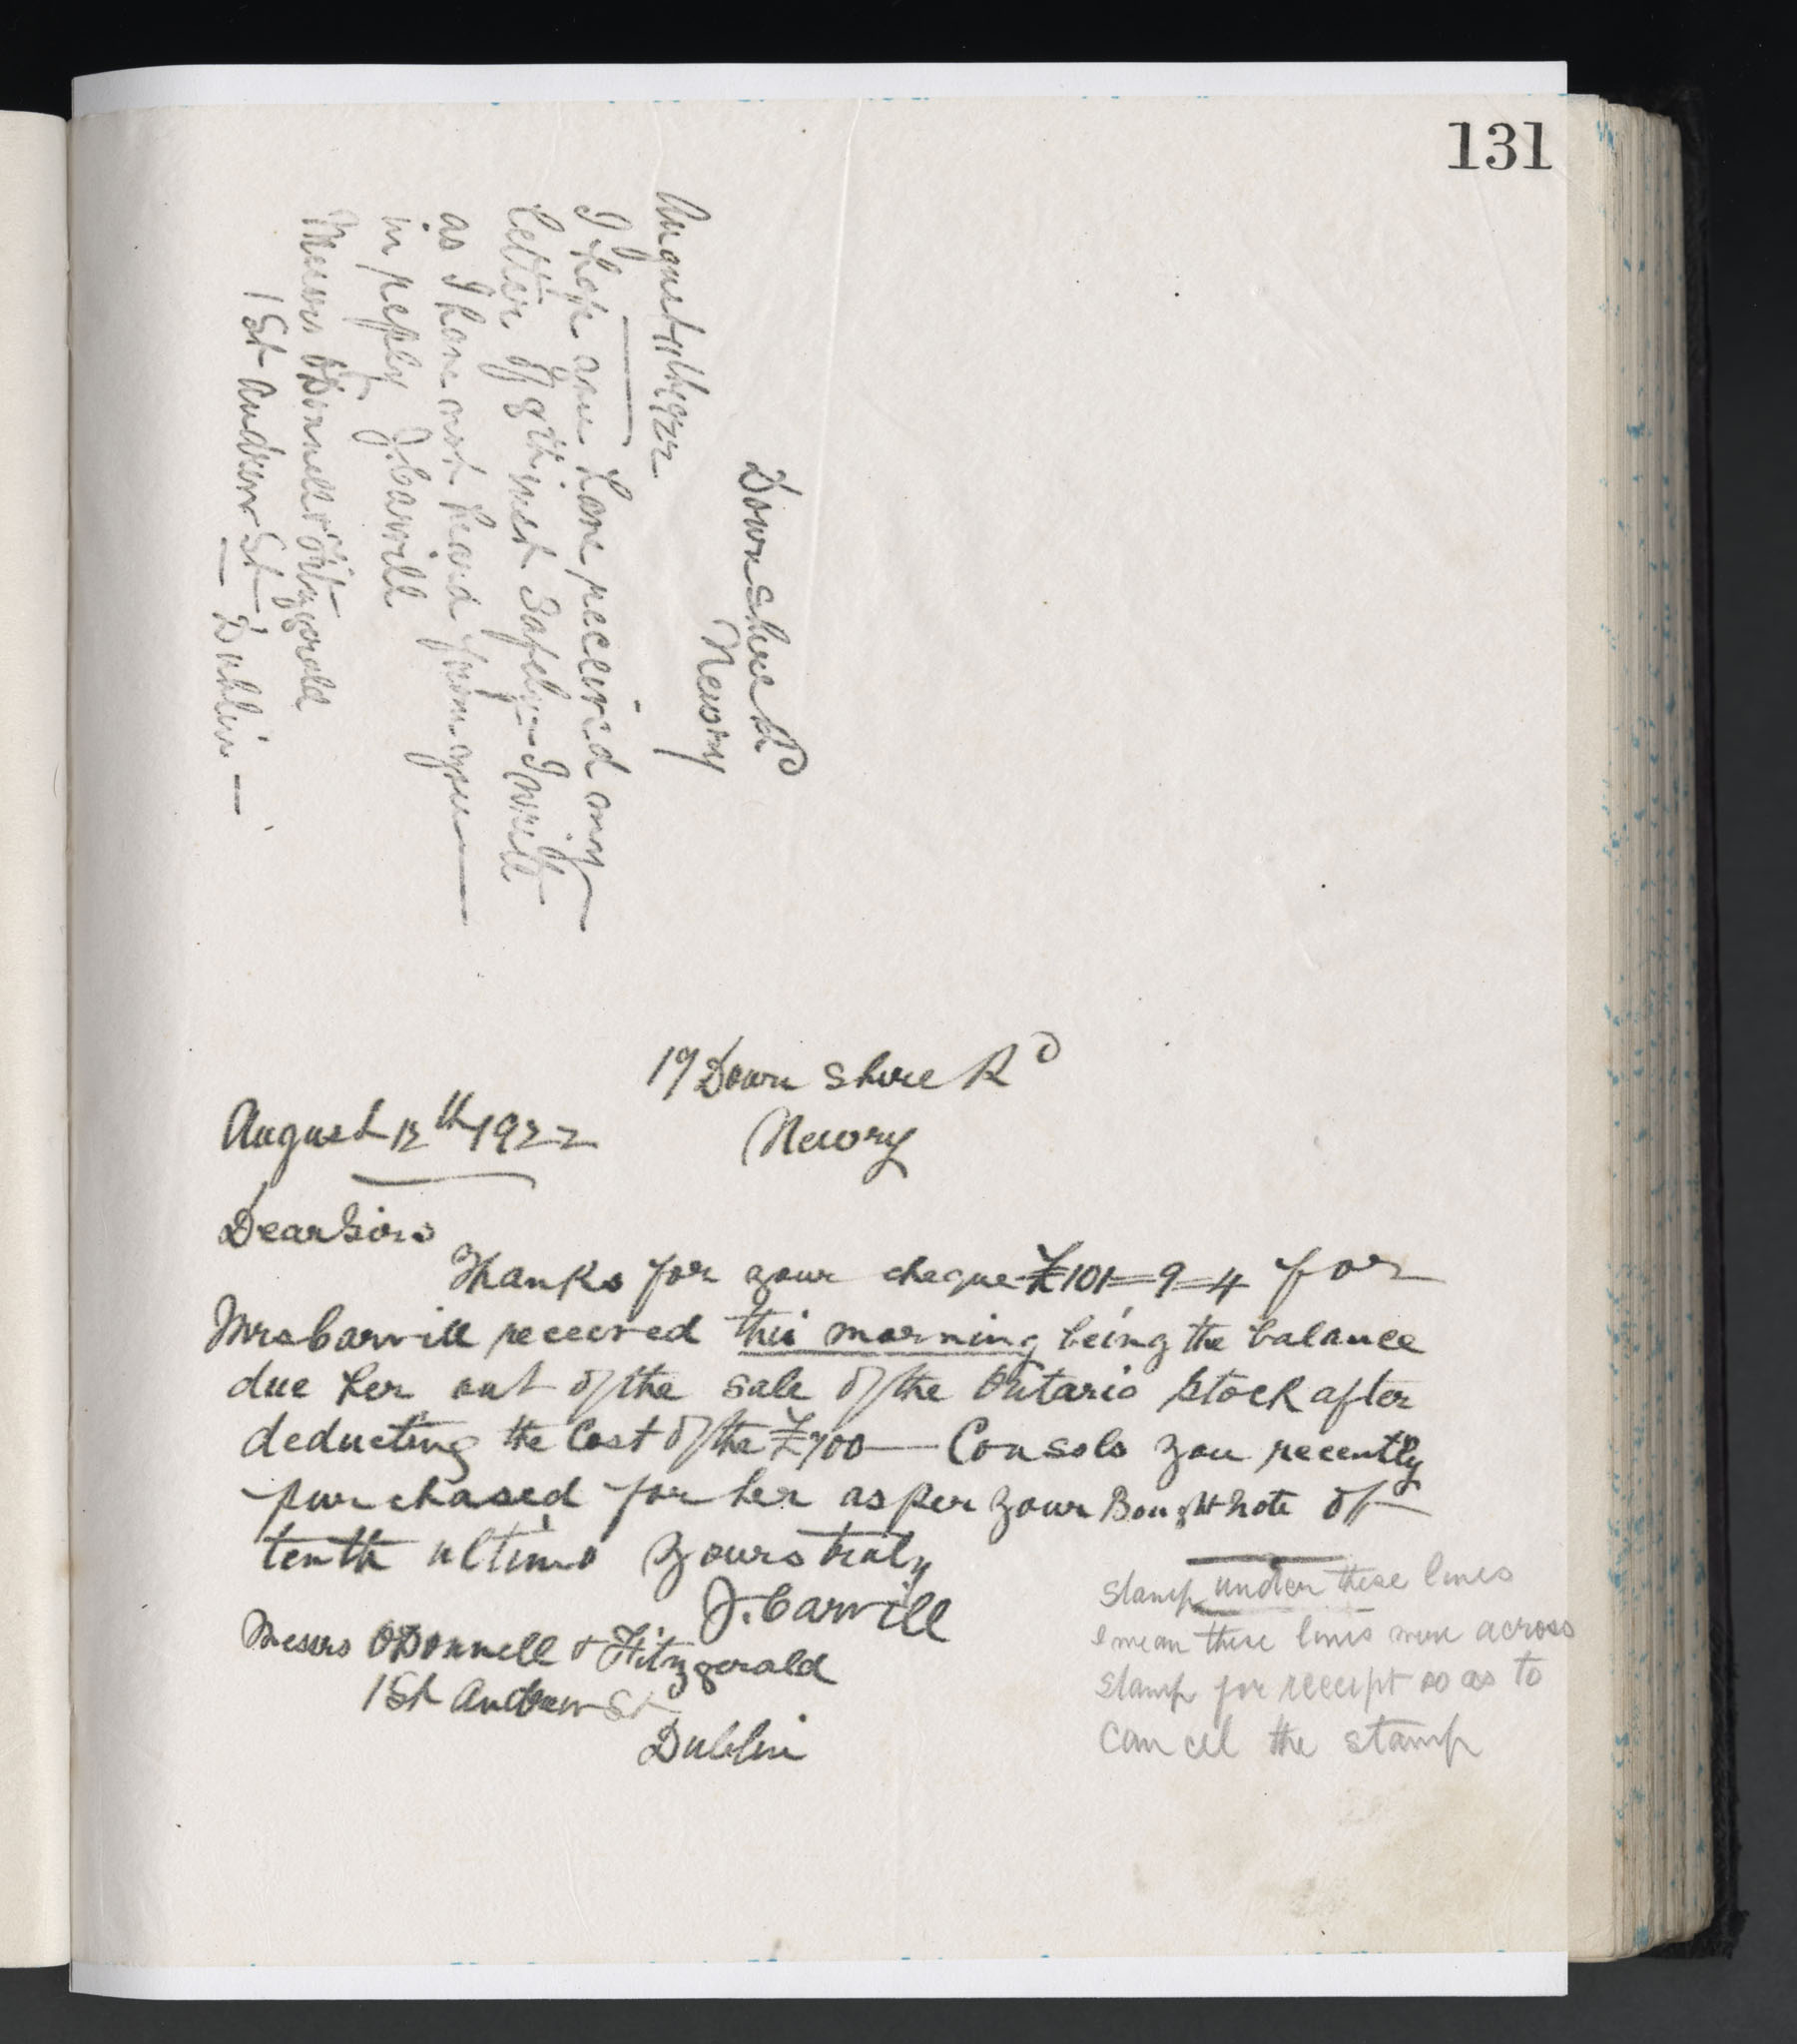 131
Downshire Rd
Newry
August 11th 1922
I hope you have received my
letter of 8th inst safely - I write
as I have not heard from you
in reply J. Carvill
Messrs O'Donnell & Fitzgerald
1 St Andrew St - Dublin -
19 Down shire Rd
August 12th 1922 Newry
Dear Sirs
Thanks for your cheque £101=9=4 for
Mrs Carvill received this morning being the balance
due her out of the sale of the Ontario Stock after
deducting the Cost of the £700 — Consols you recently
purchased for her as per your Bought note of
tenth ultimo yours truly
J. Carvill
Messrs O'Donnell & Fitzgerald
1 St Andrew St
Dublin
stamp under these lines
I mean these lines were across
stamp for receipt so as to
cancel the stamp